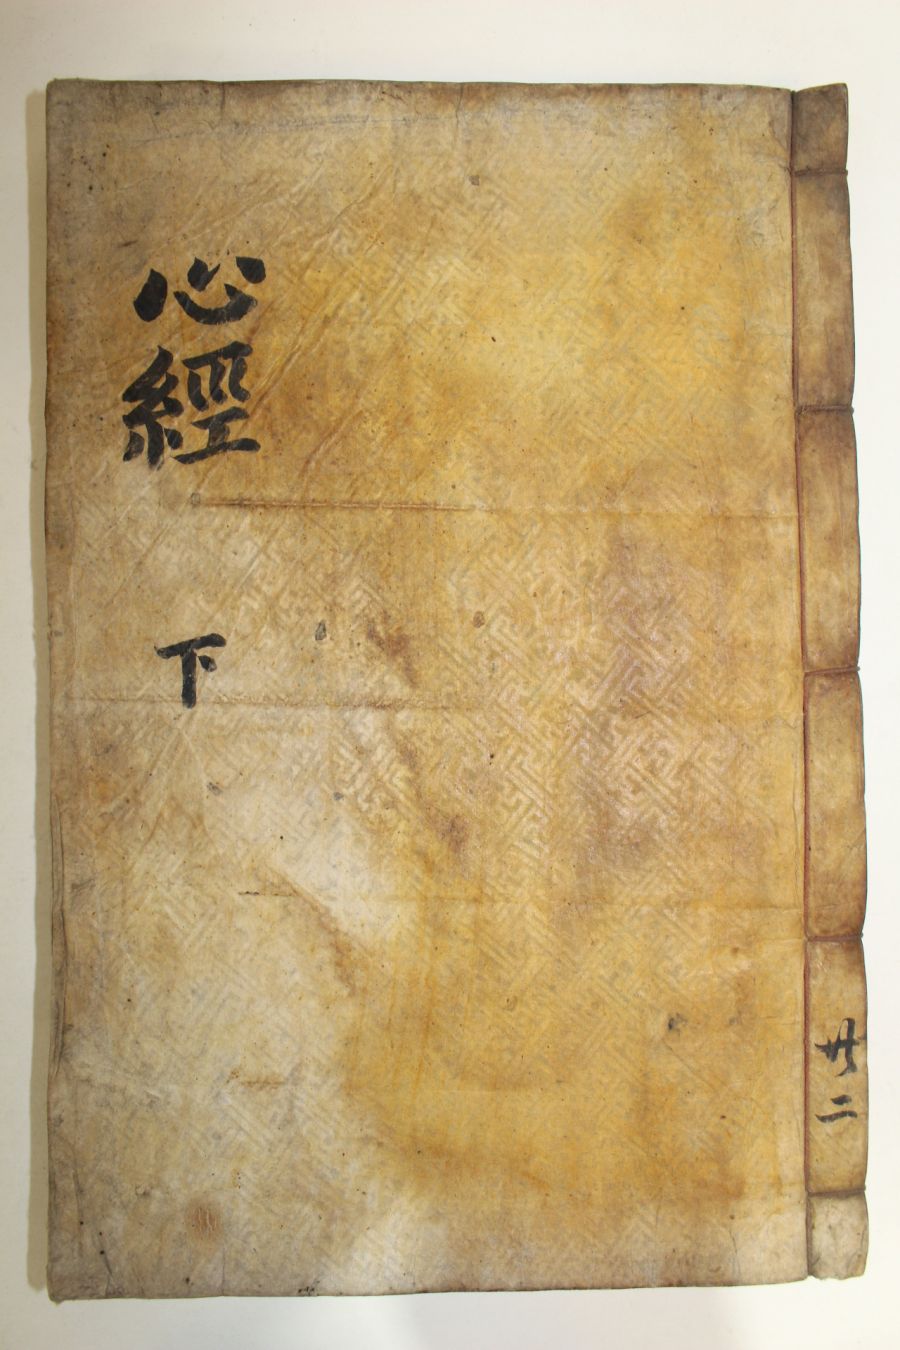 心經 下
共二